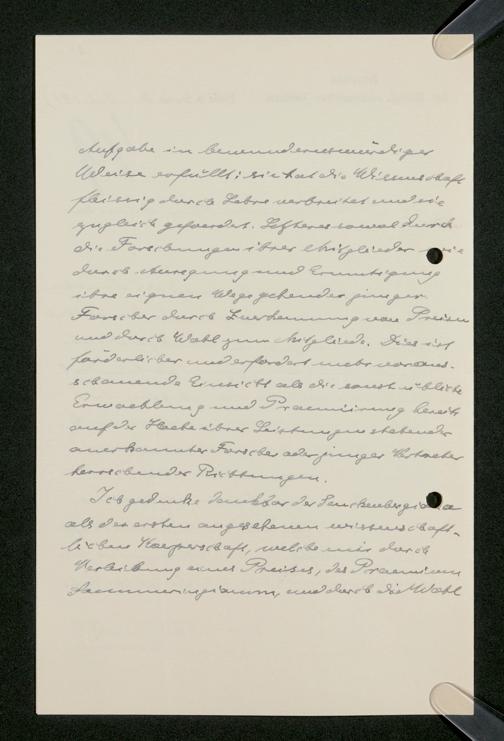 Aufgabe in bewundernswürdiger
Weise erfüllt; sie hat die Wissenschaft
fleissig durch Lehre verbreitet und sie
zugleich gefoerdert. Letzteres sowol durch
die Forschungen ihrer Mitglieder wie
durch Anregung und Ermutigung
ihre eignen Wege gehender junger
Forscher durch Zuerkennung von Preisen
und durch Wahl zum Mitgliede. Dies ist
förderlicher und erfordert mehr voraus-
schauende Einsicht als die sonst übliche
Erwaehlung und Praemiirung bereits
auf der Hoehe ihrer Leistungen stehender
anerkannter Forscher oder junger Vertreter
herrschender Richtungen.
Ich gedenke dankbar der Senckenbergiana
als der ersten angesehenen wissenschaft-
lichen Koerperschaft, welche mir durch
Verleihung eines Preises, des Praemium
Soemmeringianum, und durch die Wahl